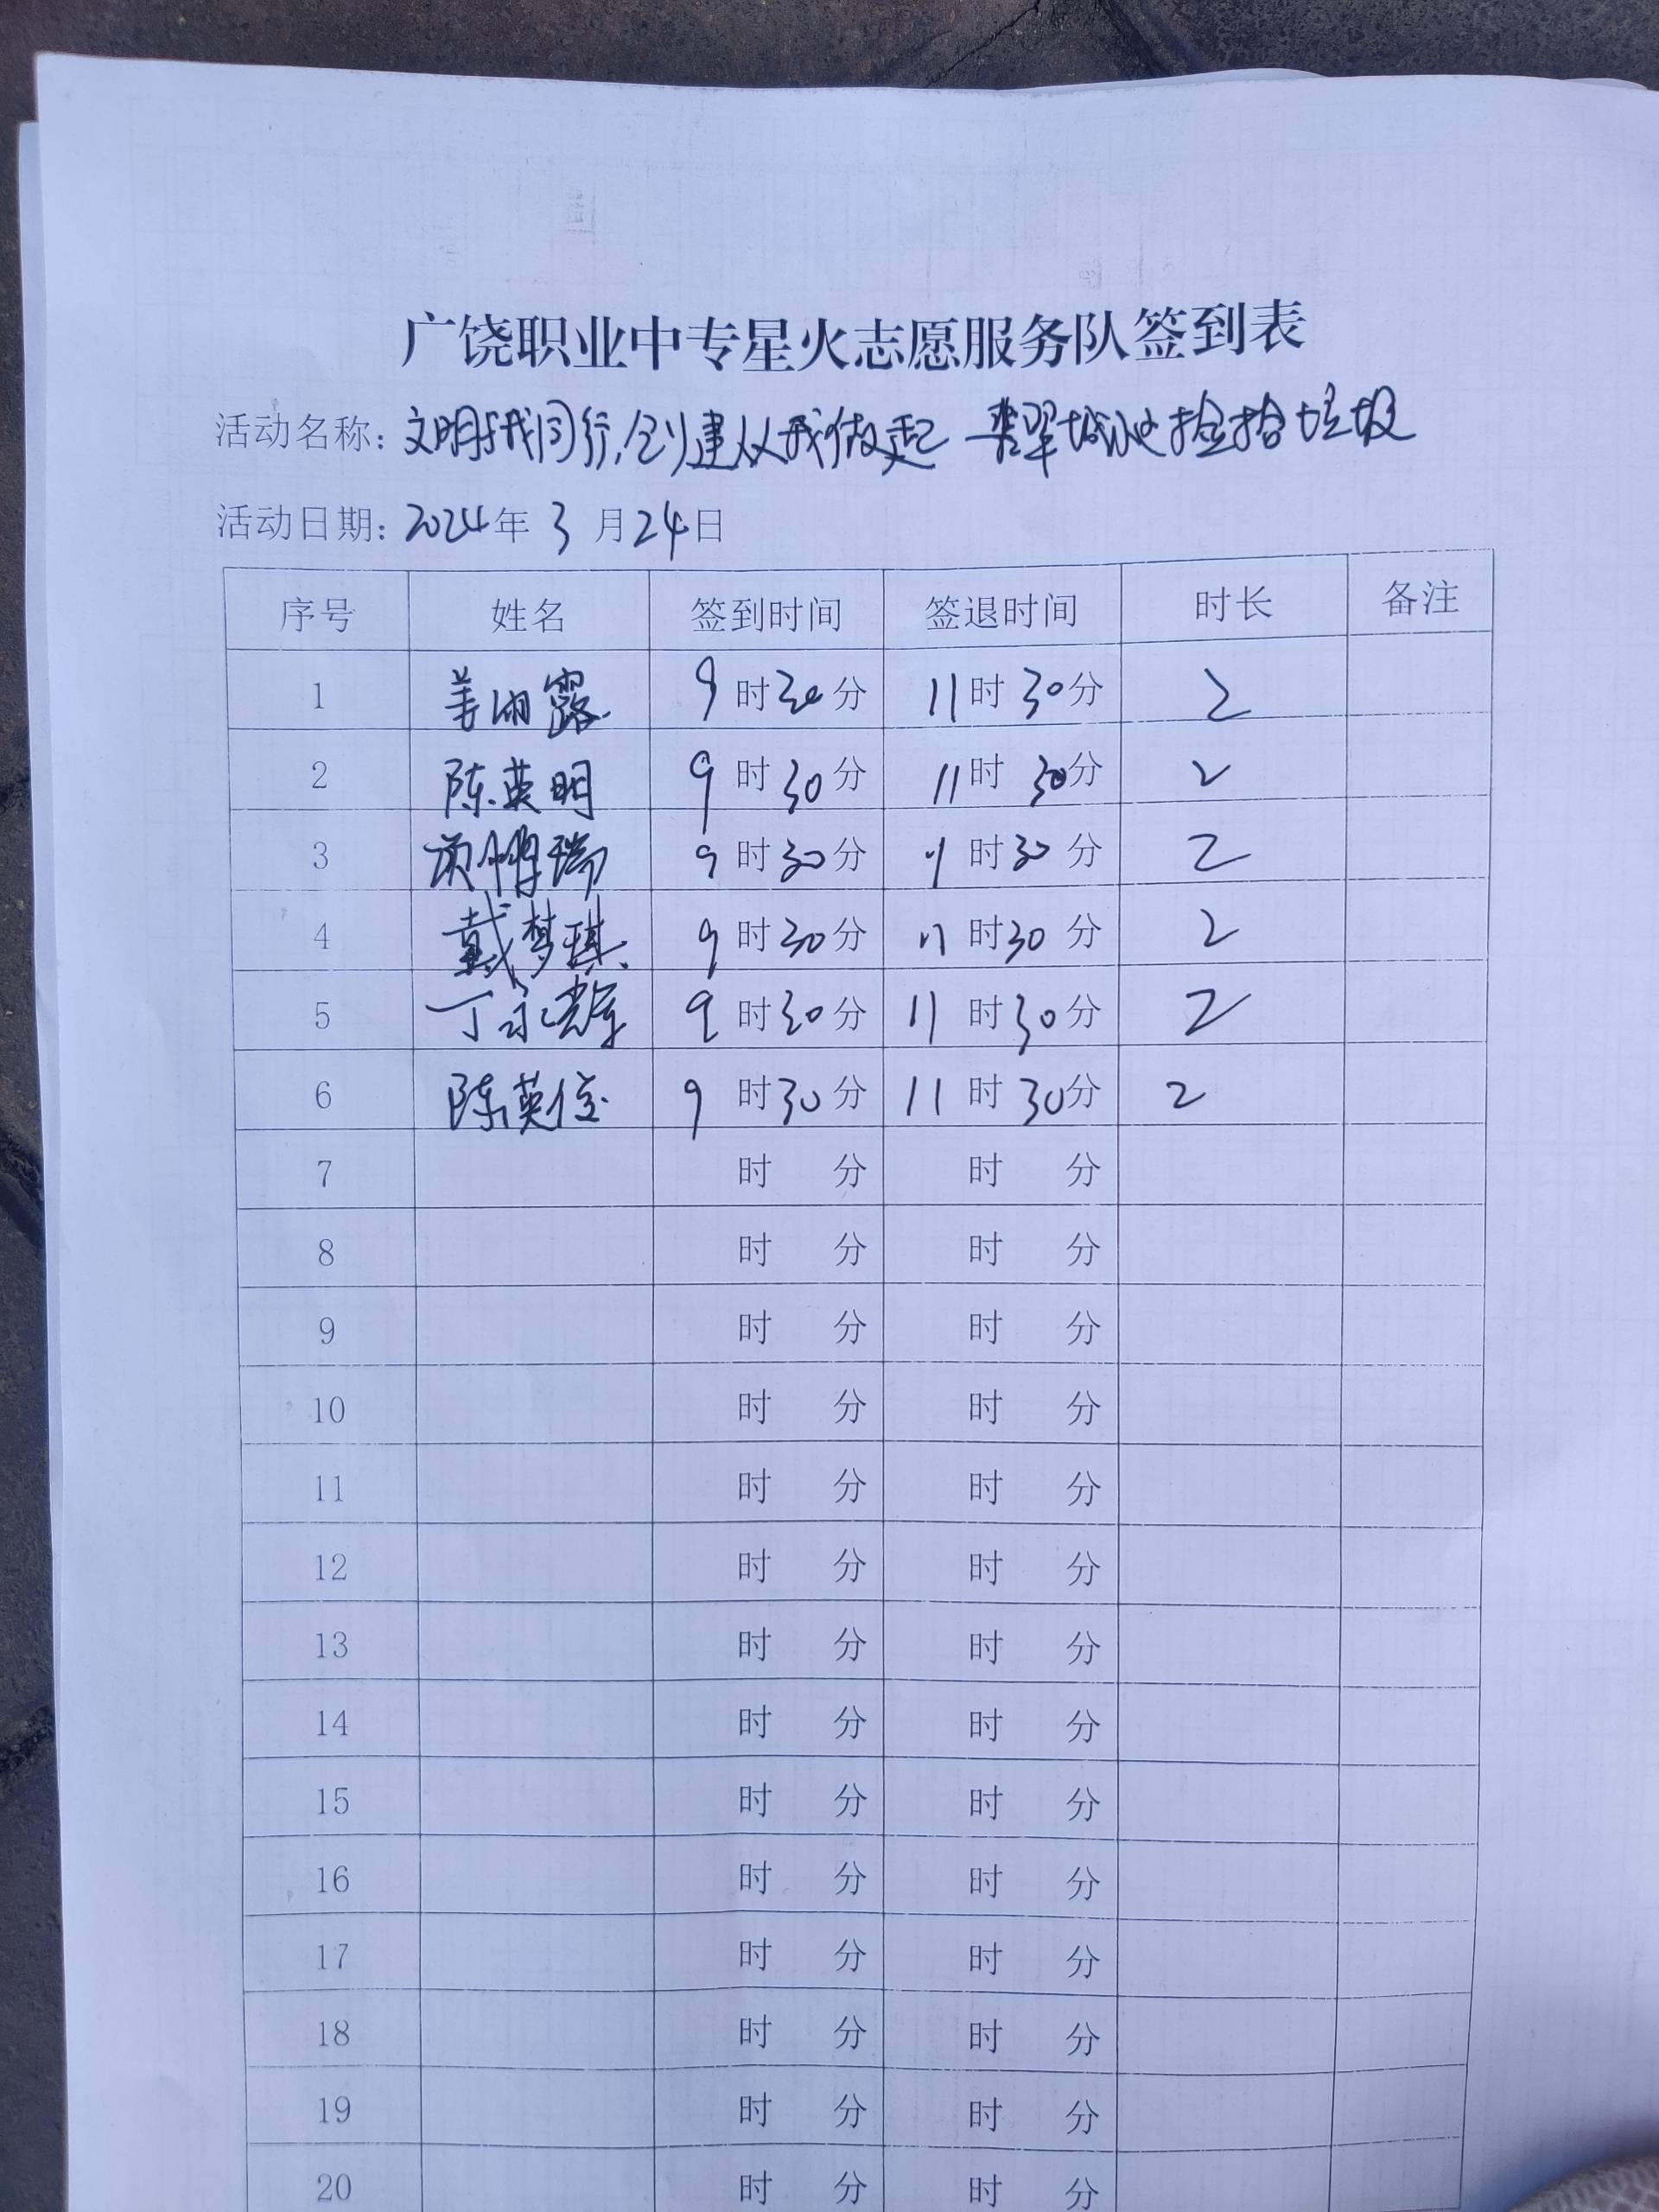 广饶职业中专星火志愿服务队签到表
活动名称：文明我同行,创建从我做起 翡翠城捡拾垃圾
活动日期：2024年 3 月24日
序号 姓名 签到时间 签退时间 时长 备注
1 姜雨露 9时30分 11时30分 2
2 陈英明 9时30分 11时30分 2
3 项鹏瑞 9时30分 11时30分 2
4 戴梦琪 9时30分 11时30分 2
5 丁永辉 9时30分 11时30分 2
6 陈英俊 9时30分 11时30分 2
7 时 分 时 分
8 时 分 时 分
9 时 分 时 分
10 时 分 时 分
11 时 分 时 分
12 时 分 时 分
13 时 分 时 分
14 时 分 时 分
15 时 分 时 分
16 时 分 时 分
17 时 分 时 分
18 时 分 时 分
19 时 分 时 分
20 时 分 时 分